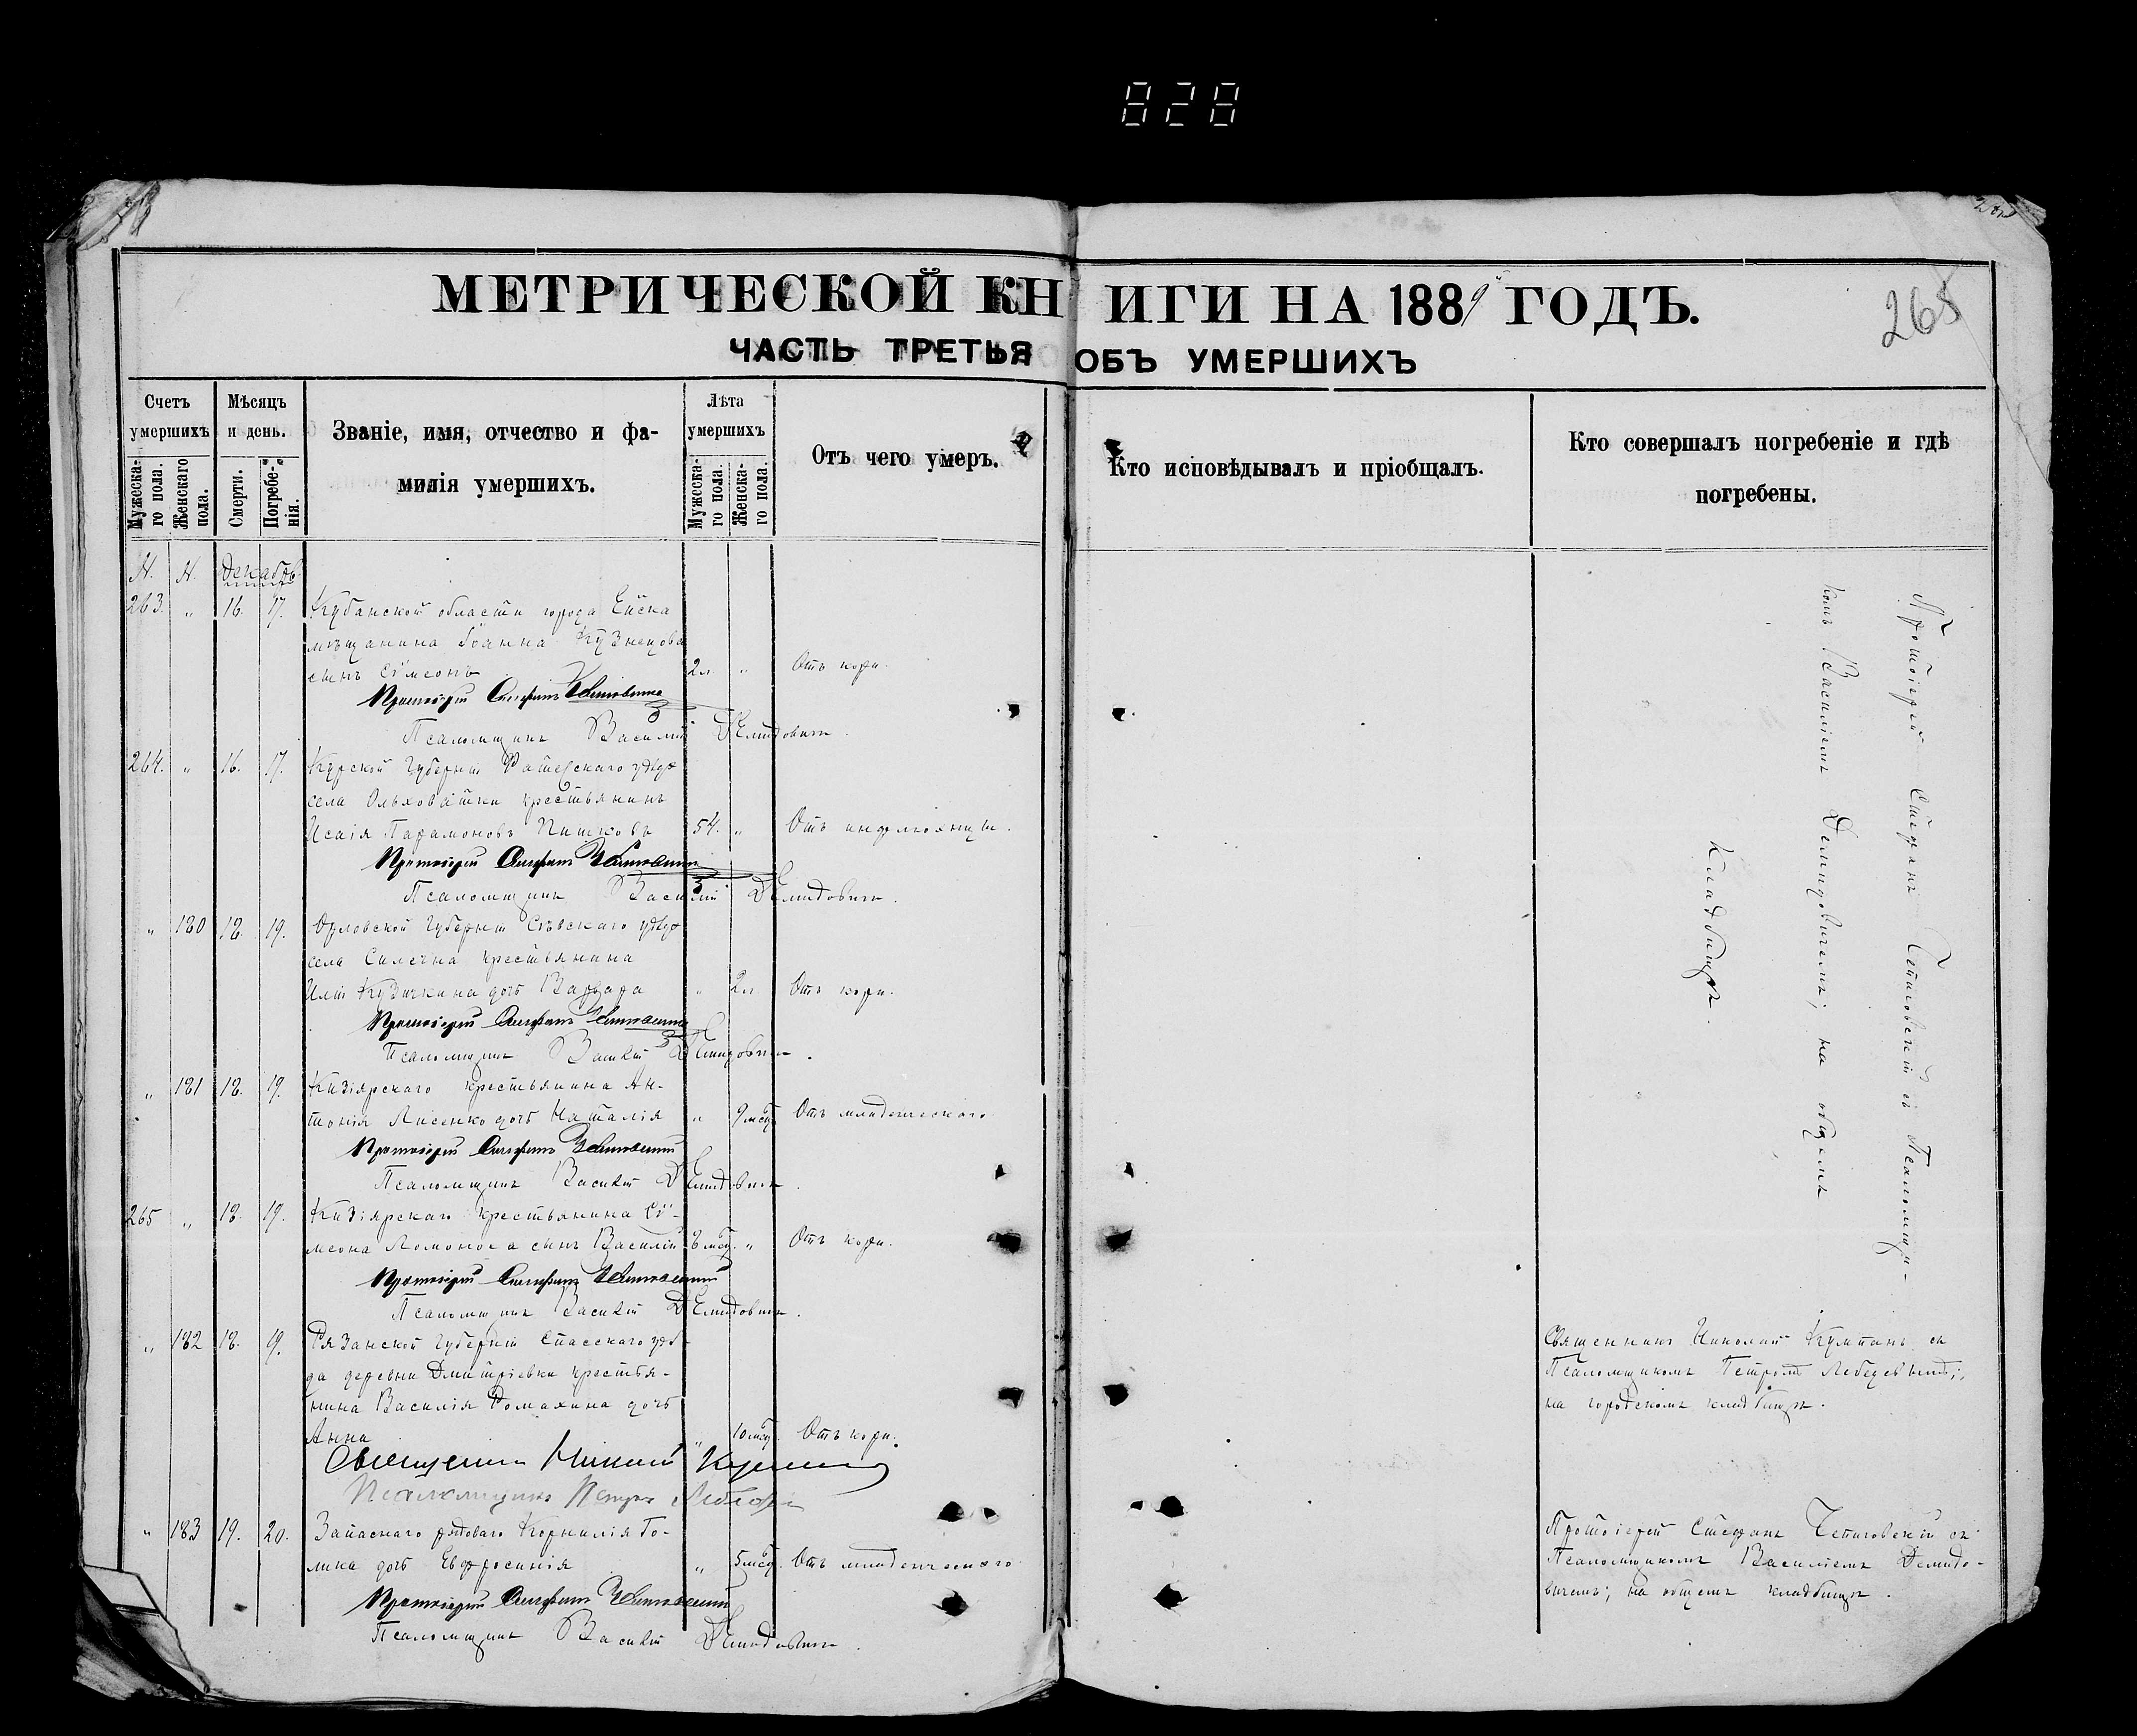 828
МЕТРИЧЕСКОЙ КНИГИ НА 1889 ГОДЪ.
265
ЧАСТЬ ТРЕТЬЯ ОБЪ УМЕРШИХЪ
Счетъ умершихъ
Мужеска-го пола.
Женскаго пола.
Мѣсяцъ и день.
Смерти.
Погребе-нія.
Званіе, имя, отчество и фа-
милія умершихъ.
Лѣта умершихъ
Мужеска-го пола.
Женска-го пола.
Отъ чего умеръ.
Кто исповѣдывалъ и пріобщалъ.
Кто совершалъ погребеніе и гдѣ
погребены.
Декабрь
263. " 16. 17. Кубанской области города Ейска
мѣщанина Іоанна Кузнецова
сынъ Сѵмеонъ 2 л. " Отъ кори.
Протоіерей Стефанъ
Псаломщикъ Василій Демидовичъ.
264. " 16. 17. Курской Губерніи уѣзда
села Ольховатки крестьянинъ
Исаія Парамоновъ 54. "
Протоіерей Стефанъ
Псаломщикъ Василій Демидовичъ.
" 180 18. 19. Орловской Губерніи Сѣвскаго уѣзда
села крестьянина
Иліи дочь Варвара " 2 л Отъ кори.
Протоіерей Стефанъ
Псаломщикъ Василій Демидовичъ.
" 181 18. 19. Кизіярскаго крестьянина Ан-
тонія Лисенко дочь Наталія " 9 мсц Отъ младенческаго
Протоіерей Стефанъ
Псаломщикъ Василій Демидовичъ.
265 " 18. 19. Кизіярскаго крестьянина Сѵ-
меона Ломоноса сынъ Василій 8 мсц. " Отъ кори.
Протоіерей Стефанъ
Псаломщикъ Василій Демидовичъ.
" 182 18. 19. Рязанской Губерніи Спасскаго уѣз-
да деревни Дмитріевки крестья-
нина Василія Ромахина дочь
Анна " 10 мсц. Отъ кори.
Священникъ Николай
Псаломщикъ Петръ
" 183 19. 20. Запаснаго рядоваго Корнилія Го-
лика дочь Евфросинія " 5 мсц. Отъ младенческаго
Протоіерей Стефанъ
Псаломщикъ Василій Демидовичъ.
Протоіерей Стефанъ съ Псаломщи-
комъ Василіемъ Демидовичемъ; на общемъ
кладбищѣ.
Священникъ Николай съ
Псаломщикомъ Петромъ Лебедевымъ;
на городскомъ кладбищѣ.
Протоіерей Стефанъ съ
Псаломщикомъ Василіемъ Демидо-
вичемъ; на общемъ кладбищѣ.